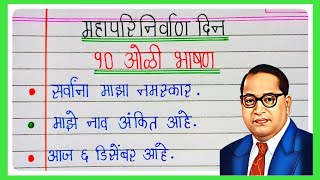 महापरिनिर्वाण दिन
१० ओळी भाषण
सर्वांना माझा नमस्कार.
माझे नाव अंकित आहे.
आज ६ डिसेंबर आहे.